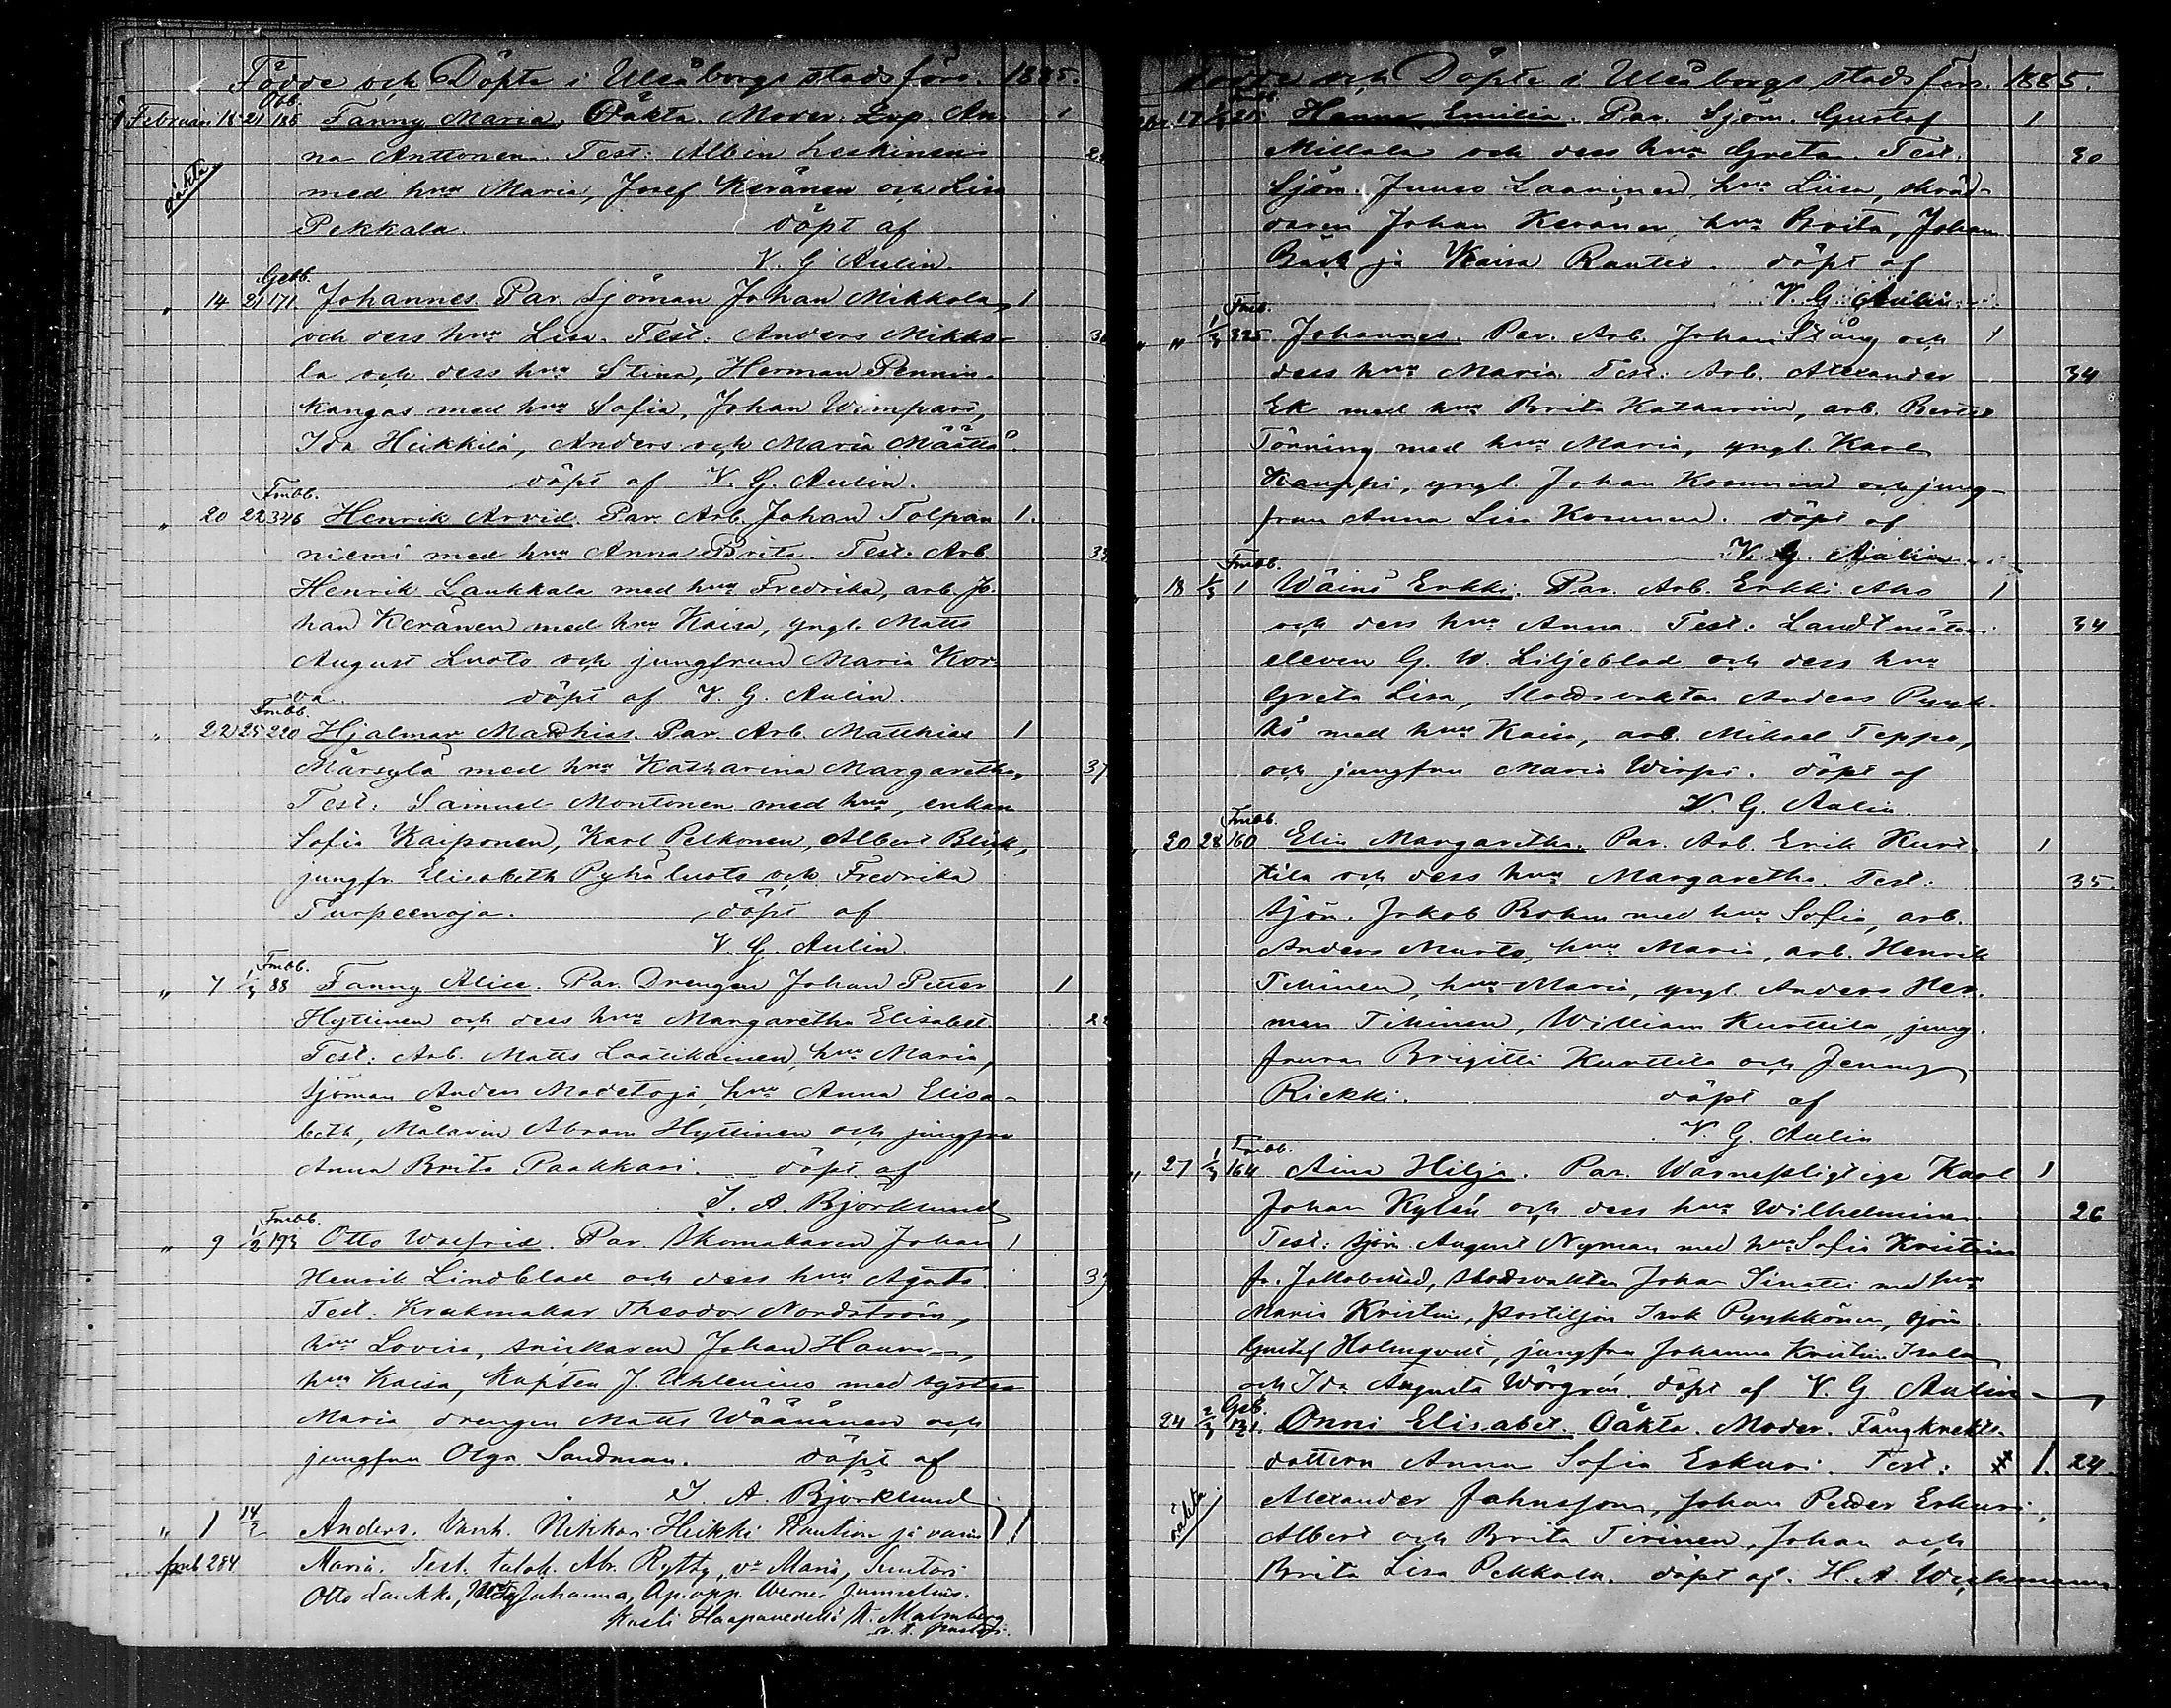 Födde och Döpte i Uleåborgs stads förs. 1885.
Obb.
Februari 18 21 186 Fanny Maria. Oäkta. Moder. Lnp. An- 1
na Anttonen. Test: Albin Leskinen
oäkta
med hru Maria, Josef Keränen och Lisa
Pekkala. döpt af
V. G. Aulin.
Gebb.
" 14 21 171 Johannes. Par. Sjöman Johan Mikkola, 1
och dess hru Lisa. Test: Anders Mikko-
la och dess hru Stina, Herman Pennin-
kangas med hru Sofia, Johan Wimpari,
Ida Heikkilä, Anders och Maria Määttä.
döpt af V. G. Aulin.
Fmbb.
" 20 22 346 Henrik Arvid. Par. Arb. Johan Tolpan 1.
niemi med hru Anna Brita. Test: Arb.
Henrik Laukkala med hru Fredrika, arb. Jo-
han Keränen med hru Kaisa, yngl. Matts
August Luoto och jungfrun Maria Kor-
va. döpt af V. G. Aulin.
Fmbb.
" 22 25 220 Hjalmar Mathias. Par. Arb. Matthias 1
Märsylä med hru Katharina Margaretha, 37
Test: Samuel Montonen med hru, enkan
Sofia Kaiponen, Karl Pelkonen, Albert Blick,
jungfr. Elisabeth Pyhäluoto och Fredrika
Turpeenoja. döpt af
V. G. Aulin.
Fmbb.
" 7 1/3 88 Fanny Alice. Par. Drengen Johan Petter 1
Hyttinen och dess hru Margaretha Elisabet. 22
Test: Arb. Matts Laatikainen, hru Maria,
sjöman Anders Madetoja, hru Anna Elisa-
beth, Målaren Abram Hyttinen och jungfru
Anna Brita Paakkari. döpt af
J. A. Björklund
Fmbb.
" 9 1/2 193 Otto Walfrid. Par. Skomakaren Johan 1
Henrik Lindblad och dess hru Agata. 39
Test: Krukmakar Theodor Nordström,
hru Lovisa, snickaren Johan Hannu,
hru Kaisa, Kapten J. Uhlenius med syster
Maria drengen Matts Wäänänen och
jungfrun Olga Sandman. döpt af
J. A. Björklund
" 1 14/2 Anders. Vanh. Nikkari Heikki Rautio ja vaim 1
fmb 284 Maria. Test. talok. Abr. Rytky, vo Maria, Suutari
Otto Laukka, Johanna, Ap. opp. Werner Jumselius.
Kasti Haapavedellä K. Malmberg
v. t. pastori.
Födde och Döpte i Uleåborgs stads förs. 1885.
Fmbb.
Febr. 17 1/3 25 Hanna Emilia. Par. Sjöm. Gustaf 1
Millala och dess hru Greta. Test. 30
Sjöm. Juuso Laaninen, hru Liisa, skräd-
daren Johan Keränen, hru Brita, Johan
Bäck ja Kaisa Rautio. döpt af
V. G. Aulin.
Fmb.
" " 1/3 325 Johannes. Par. Arb. Johan Stång och 1
dess hru Maria. Test: Arb. Alexander 34
Ek med hru Brita Katharina, arb.
Törning med hru Maria, yngl. Karl
Kauppi, yngl. Johan Kosunen och jung-
frun Anna Lisa Kosunen. döpt af
V. G. Aulin.
Fmbb.
" 18 1/3 1 Wäinö Erkki. Par. Arb. Erkki Aho 1
och dess hru Anna. Test: Landtmäteri 34
eleven G. W. Liljeblad och dess hru
Greta Lisa, Stadsvakten Anders Pyyk-
kö med hru Kaisa, arb. Mikael Teppo,
och jungfrun Maria Wirpi. döpt af
V. G. Aulin.
Fmbb.
" 20 28 160 Elin Margaretha. Par. Arb. Erik Kurt- 1
tila och dess hru Margaretha. Test: 35.
sjöm. Jakob Bohm med hru Sofia, arb.
Anders Murto, hru Maria, arb. Henrik
Tihinen, hru Maria, yngl. Anders Her-
man Tihinen, William Kurttila, jung-
frurna Brigitta Kurttila och Jenny
Riekki. döpt af
V. G. Aulin
Fmbb.
" 27 1/3 164 Aina Hilja. Par. Wärnepligtige Karl 1
Johan Kylén och dess hru Wilhelmina. 26
Test: sjöm. August Nyman med hru Sofia Kristina
fr. Jakobstad, stadsvakten Johan med hru
Maria Kristina, postiljon Isak Pyykkönen, sjöm
Gustaf Holmqvist, jungfru Johanna Kristina Isala
och Ida Augusta Wörgrén. döpt af V. G. Aulin
Geb.
24 2/3 131. Onni Elisabet. Oäkta. Moder. Fångknekts-
dottern Anna Sofia Eskuri. Test: 1. 24.
oäkta
Alexander Johnsson, Johan Peder Eskuri,
Albert och Brita Tirinen, Johan och
Brita Lisa Pekkala. döpt af. H. A. Wichmann